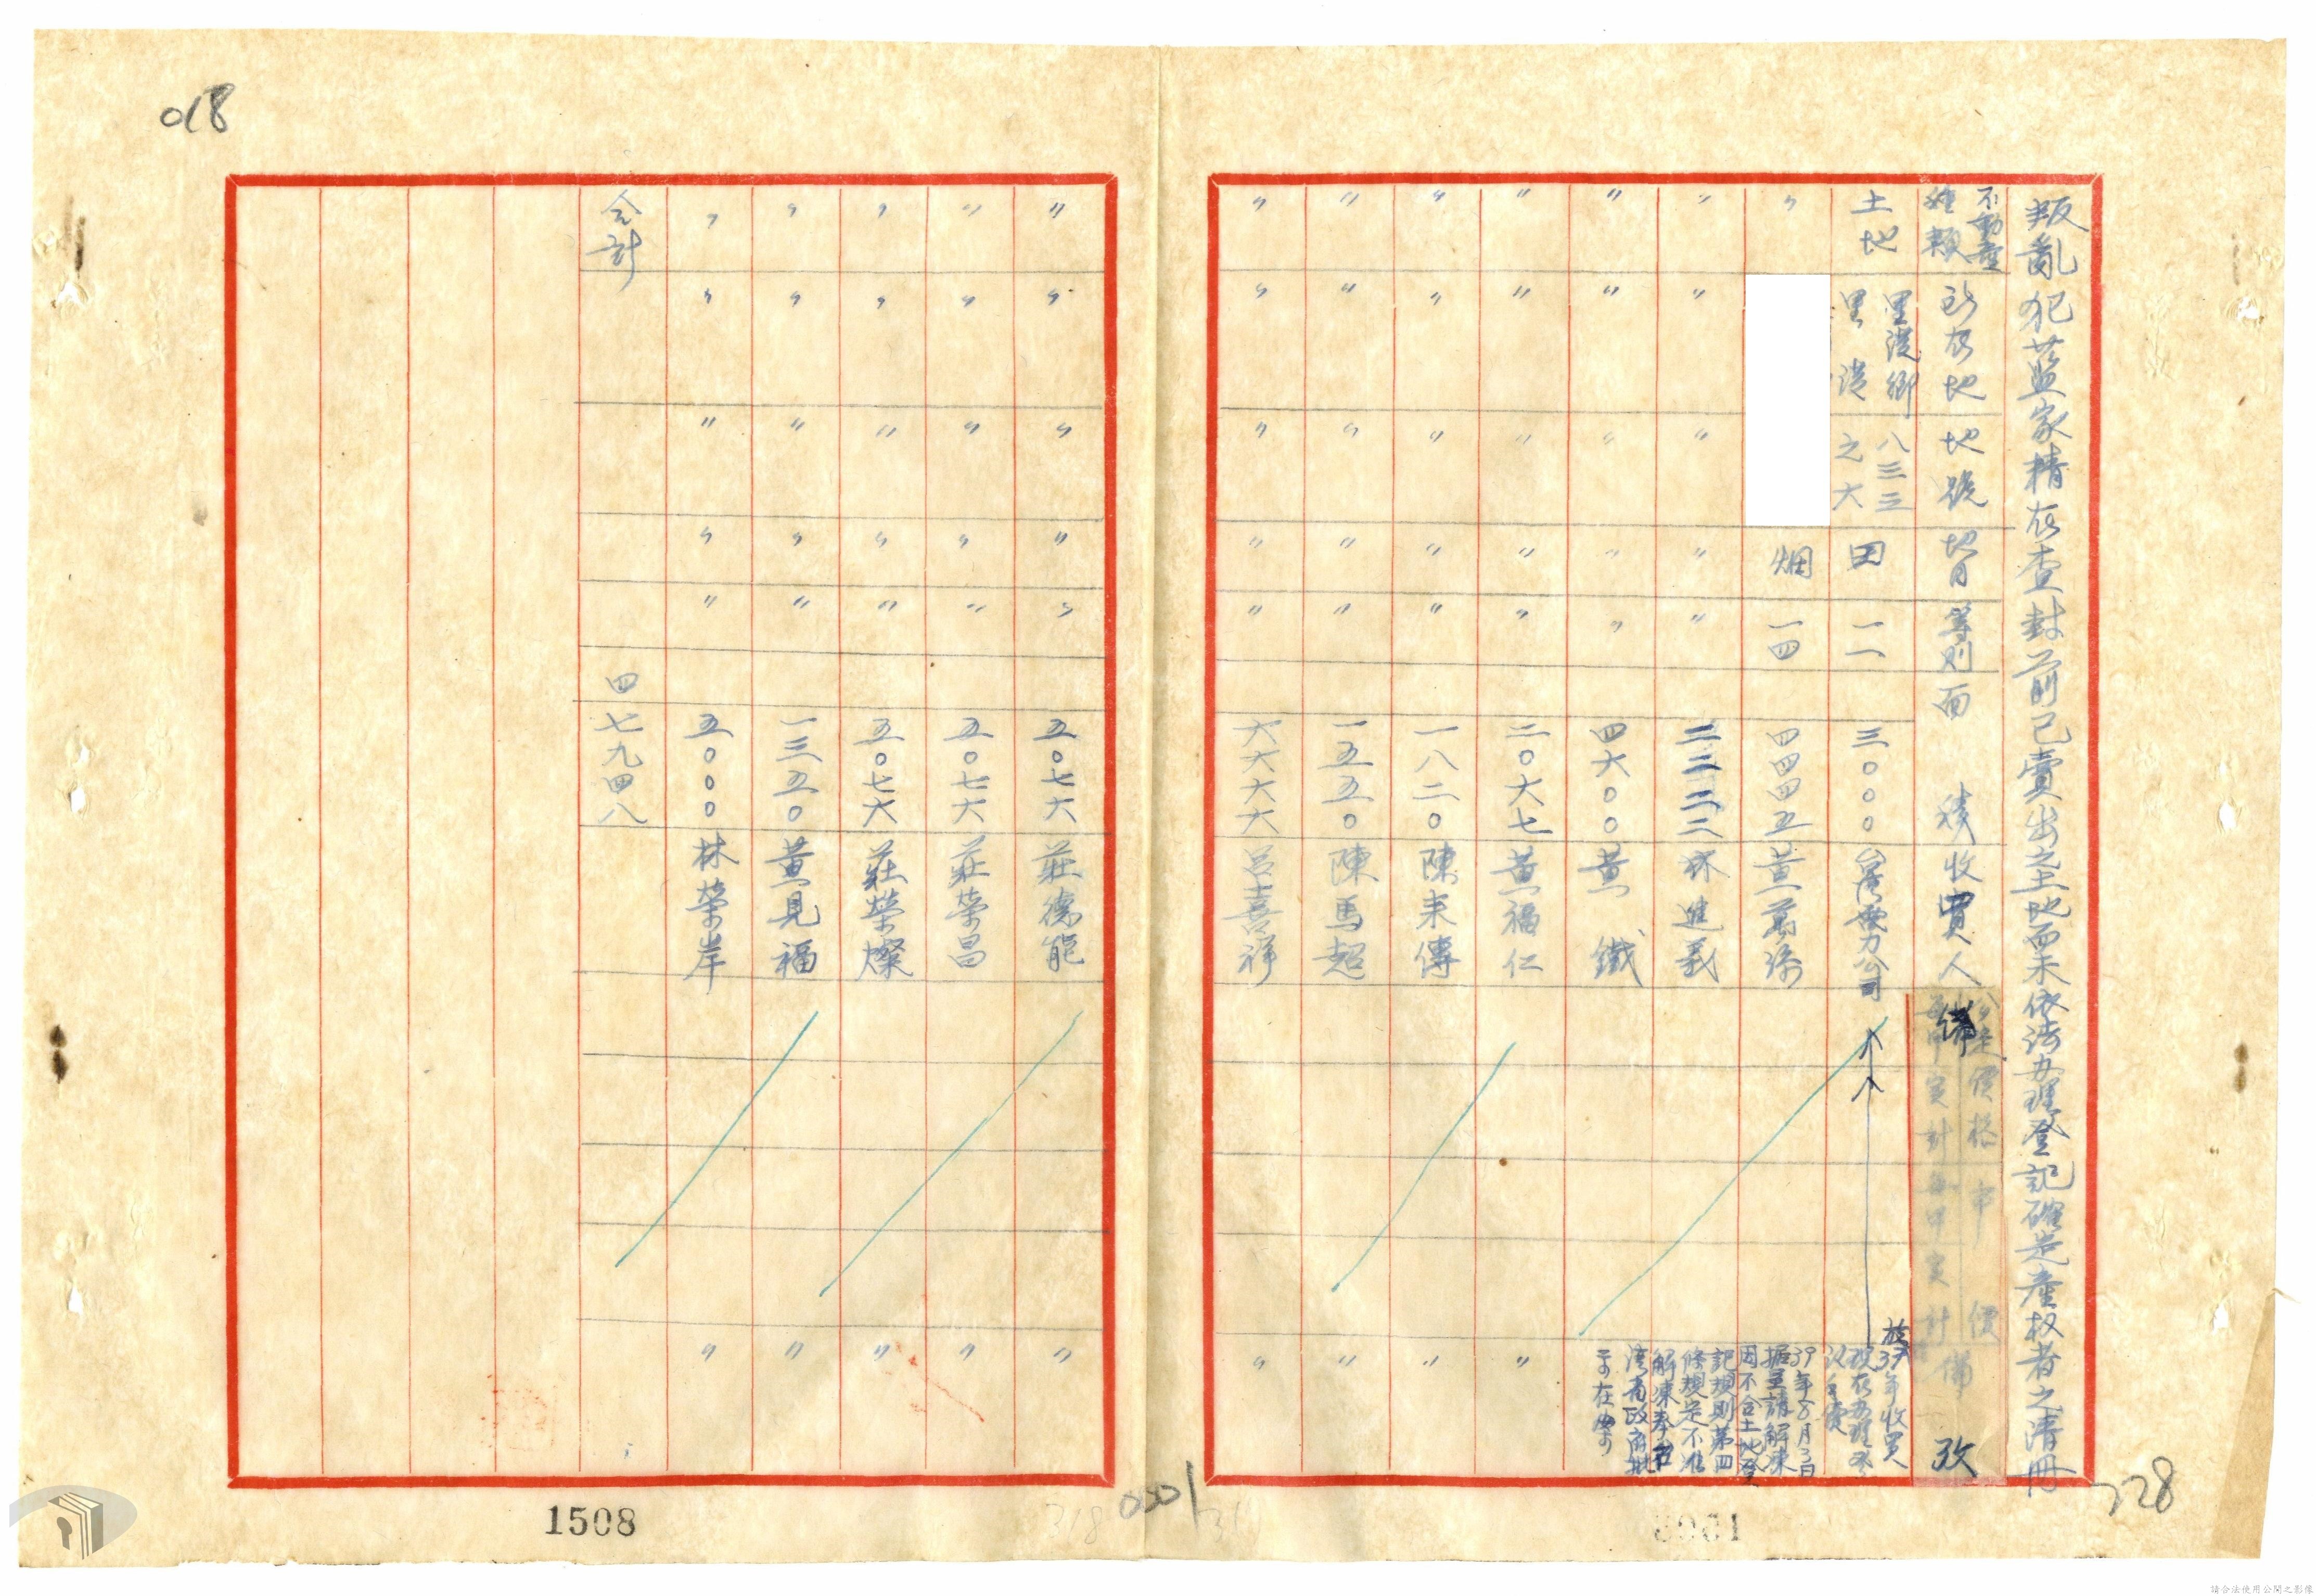 叛亂犯藍家精在查封前已賣出之土地而未依法办理登記確定產权者之清冊
不動產種類 所在地 地號 地目 等則 面積 收買人 備 攷
土地 里港鄉里港 八三三之六 田 一一 三〇〇〇 台灣電力公司
〃 畑 一四 四四四五 黃萬添
〃 〃 〃 〃 〃 二三二二 林進義
〃 〃 〃 〃 〃 四六〇〇 黃鐵
〃 〃 〃 〃 〃 二〇六七 黃福仁 〃
〃 〃 〃 〃 〃 一八二〇 陳来傳 〃
〃 〃 〃 〃 〃 一五五〇 陳馬超 〃
〃 〃 〃 〃 〃 六六六六 呂喜祥 〃
於37年收買
現在办理登
39年8月3日
据呈請解凍
因不合土地登
記規則第四
條規定不准
解凍奉台
湾省政府批
示在案
〃 〃 〃 〃 〃 五〇七六 莊德能 〃
〃 〃 〃 〃 〃 五〇七六 莊榮昌 〃
〃 〃 〃 〃 〃 五〇七六 莊榮燦 〃
〃 〃 〃 〃 〃 一三五〇 黃見福 〃
〃 〃 〃 〃 〃 五〇〇〇 林榮岸 〃
仝計 四七九四八
018
728
1508
請合法使用公開之影像